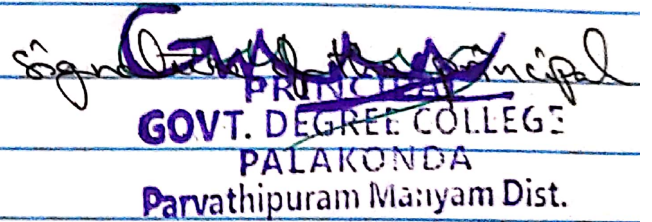 signature of the principal
PRINCIPAL
GOVT. DEGREE COLLEGE
PALAKONDA
Parvathipuram Manyam Dist.